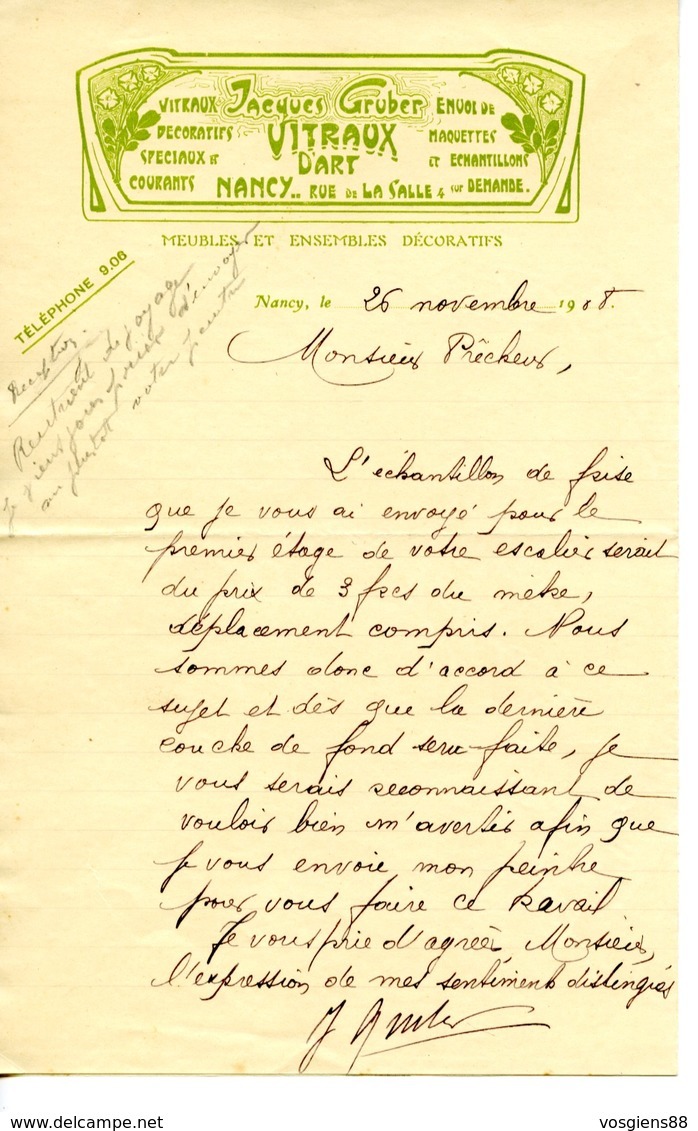 VITRAUX
DECORATIFS
SPECIAUX ET
COURANTS
Jacques Gruber
VITRAUX
D'ART
NANCY.. RUE DE LA SALLE 4
ENVOI DE
MAQUETTES
ET ECHANTILLONS
sur DEMANDE.
MEUBLES ET ENSEMBLES DÉCORATIFS
TÉLÉPHONE 9.06
Rentrant de voyage
Nancy, le 26 novembre 1908.
Monsieur Prêcheur,
L'échantillon de frise
que je vous ai envoyé pour le
premier étage de votre escalier serait
du prix de 3 frcs du mètre,
déplacement compris. Nous
sommes donc d'accord à ce
sujet et dès que la dernière
couche de fond sera faite, je
vous serais reconnaissant de
vouloir bien m'avertir afin que
je vous envoie mon peintre
pour vous faire ce travail
Je vous prie d'agréer Monsieur,
l'expression de mes sentiments distingués
J Gruber
vosgiens88